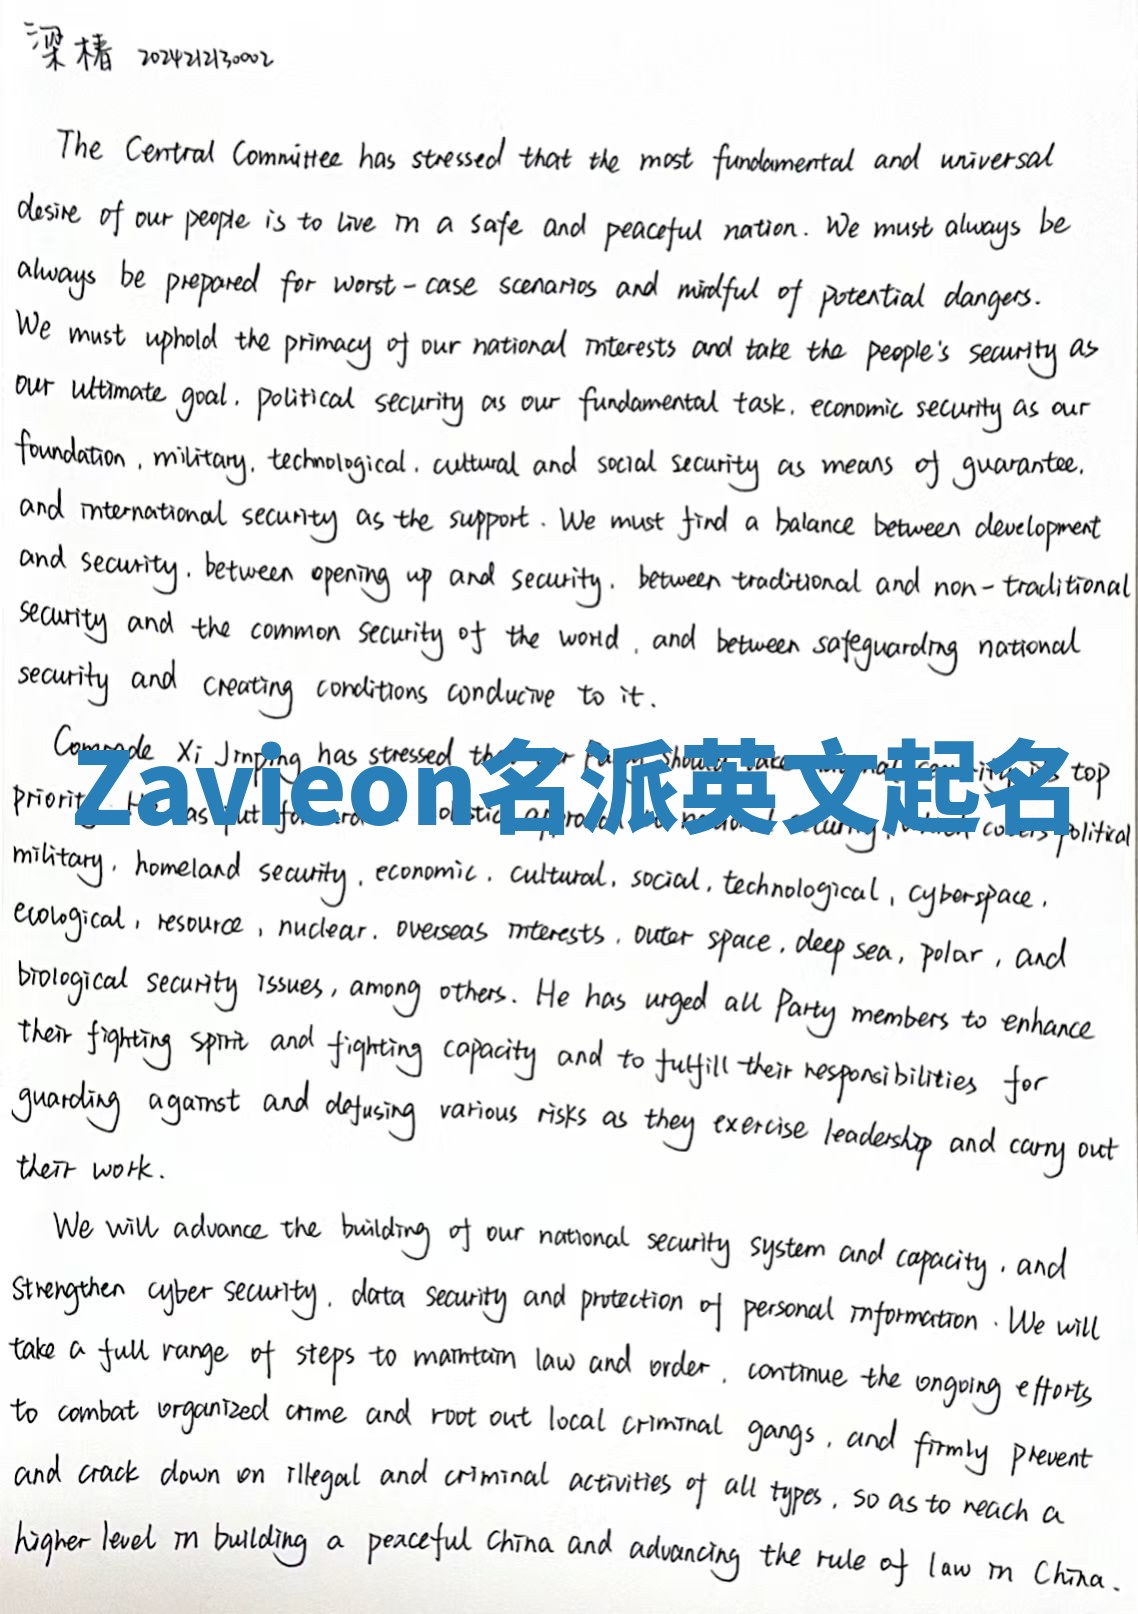 梁椿 2024212130002
The Central Committee has stressed that the most fundamental and universal
desire of our people is to live in a safe and peaceful nation. We must always be
always be prepared for worst-case scenarios and mindful of potential dangers.
We must uphold the primacy of our national interests and take the people's security as
our ultimate goal, political security as our fundamental task, economic security as our
foundation, military, technological, cultural and social security as means of guarantee,
and international security as the support. We must find a balance between development
and security, between opening up and security, between traditional and non-traditional
security and the common security of the world, and between safeguarding national
security and creating conditions conducive to it.
Comrade Xi Jinping has stressed should top
Zavieon名派英文起名
put political
military, homeland security, economic, cultural, social, technological, cyberspace,
ecological, resource, nuclear, overseas interests, outer space, deep sea, polar, and
biological security issues, among others. He has urged all Party members to enhance
their fighting spirit and fighting capacity and to fulfill their responsibilities for
guarding against and defusing various risks as they exercise leadership and carry out
their work.
We will advance the building of our national security system and capacity, and
strengthen cyber security, data security and protection of personal information. We will
take a full range of steps to maintain law and order, continue the ongoing efforts
to combat organized crime and root out local criminal gangs, and firmly prevent
and crack down on illegal and criminal activities of all types, so as to reach a
higher level in building a peaceful China and advancing the rule of law in China.